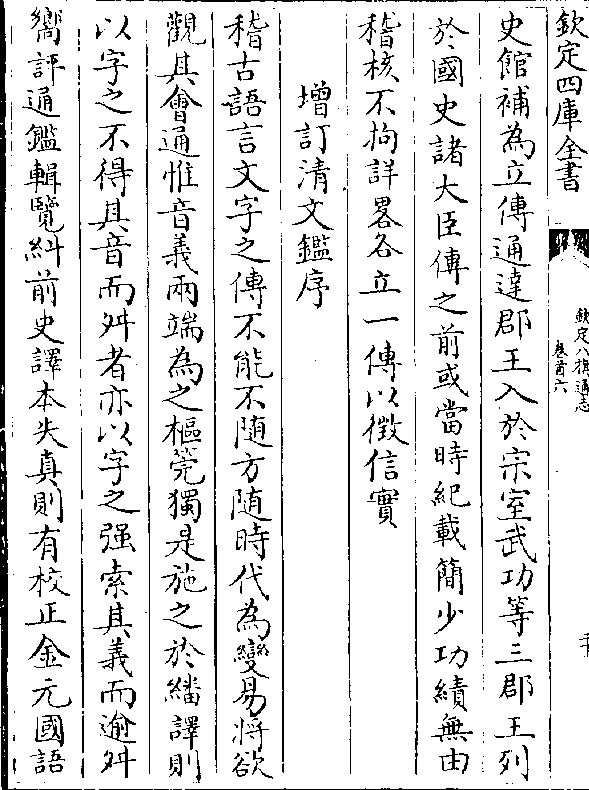 欽定四庫全書
欽定八旗通志
卷首六
二十
史館補為立傳通達郡王入於宗室武功等三郡王列
於國史諸大臣傳之前或當時紀載簡少功績無由
稽核不拘詳畧各立一傳以徵信實
增訂清文鑑序
稽古語言文字之傳不能不随方随時代為變易將欲
觀其會通惟音義兩端為之樞筦獨是施之於繙譯則
以字之不得其音而舛者亦以字之强索其義而逾舛
嚮評通鑑輯覽糾前史譯本失真則有校正金元國語